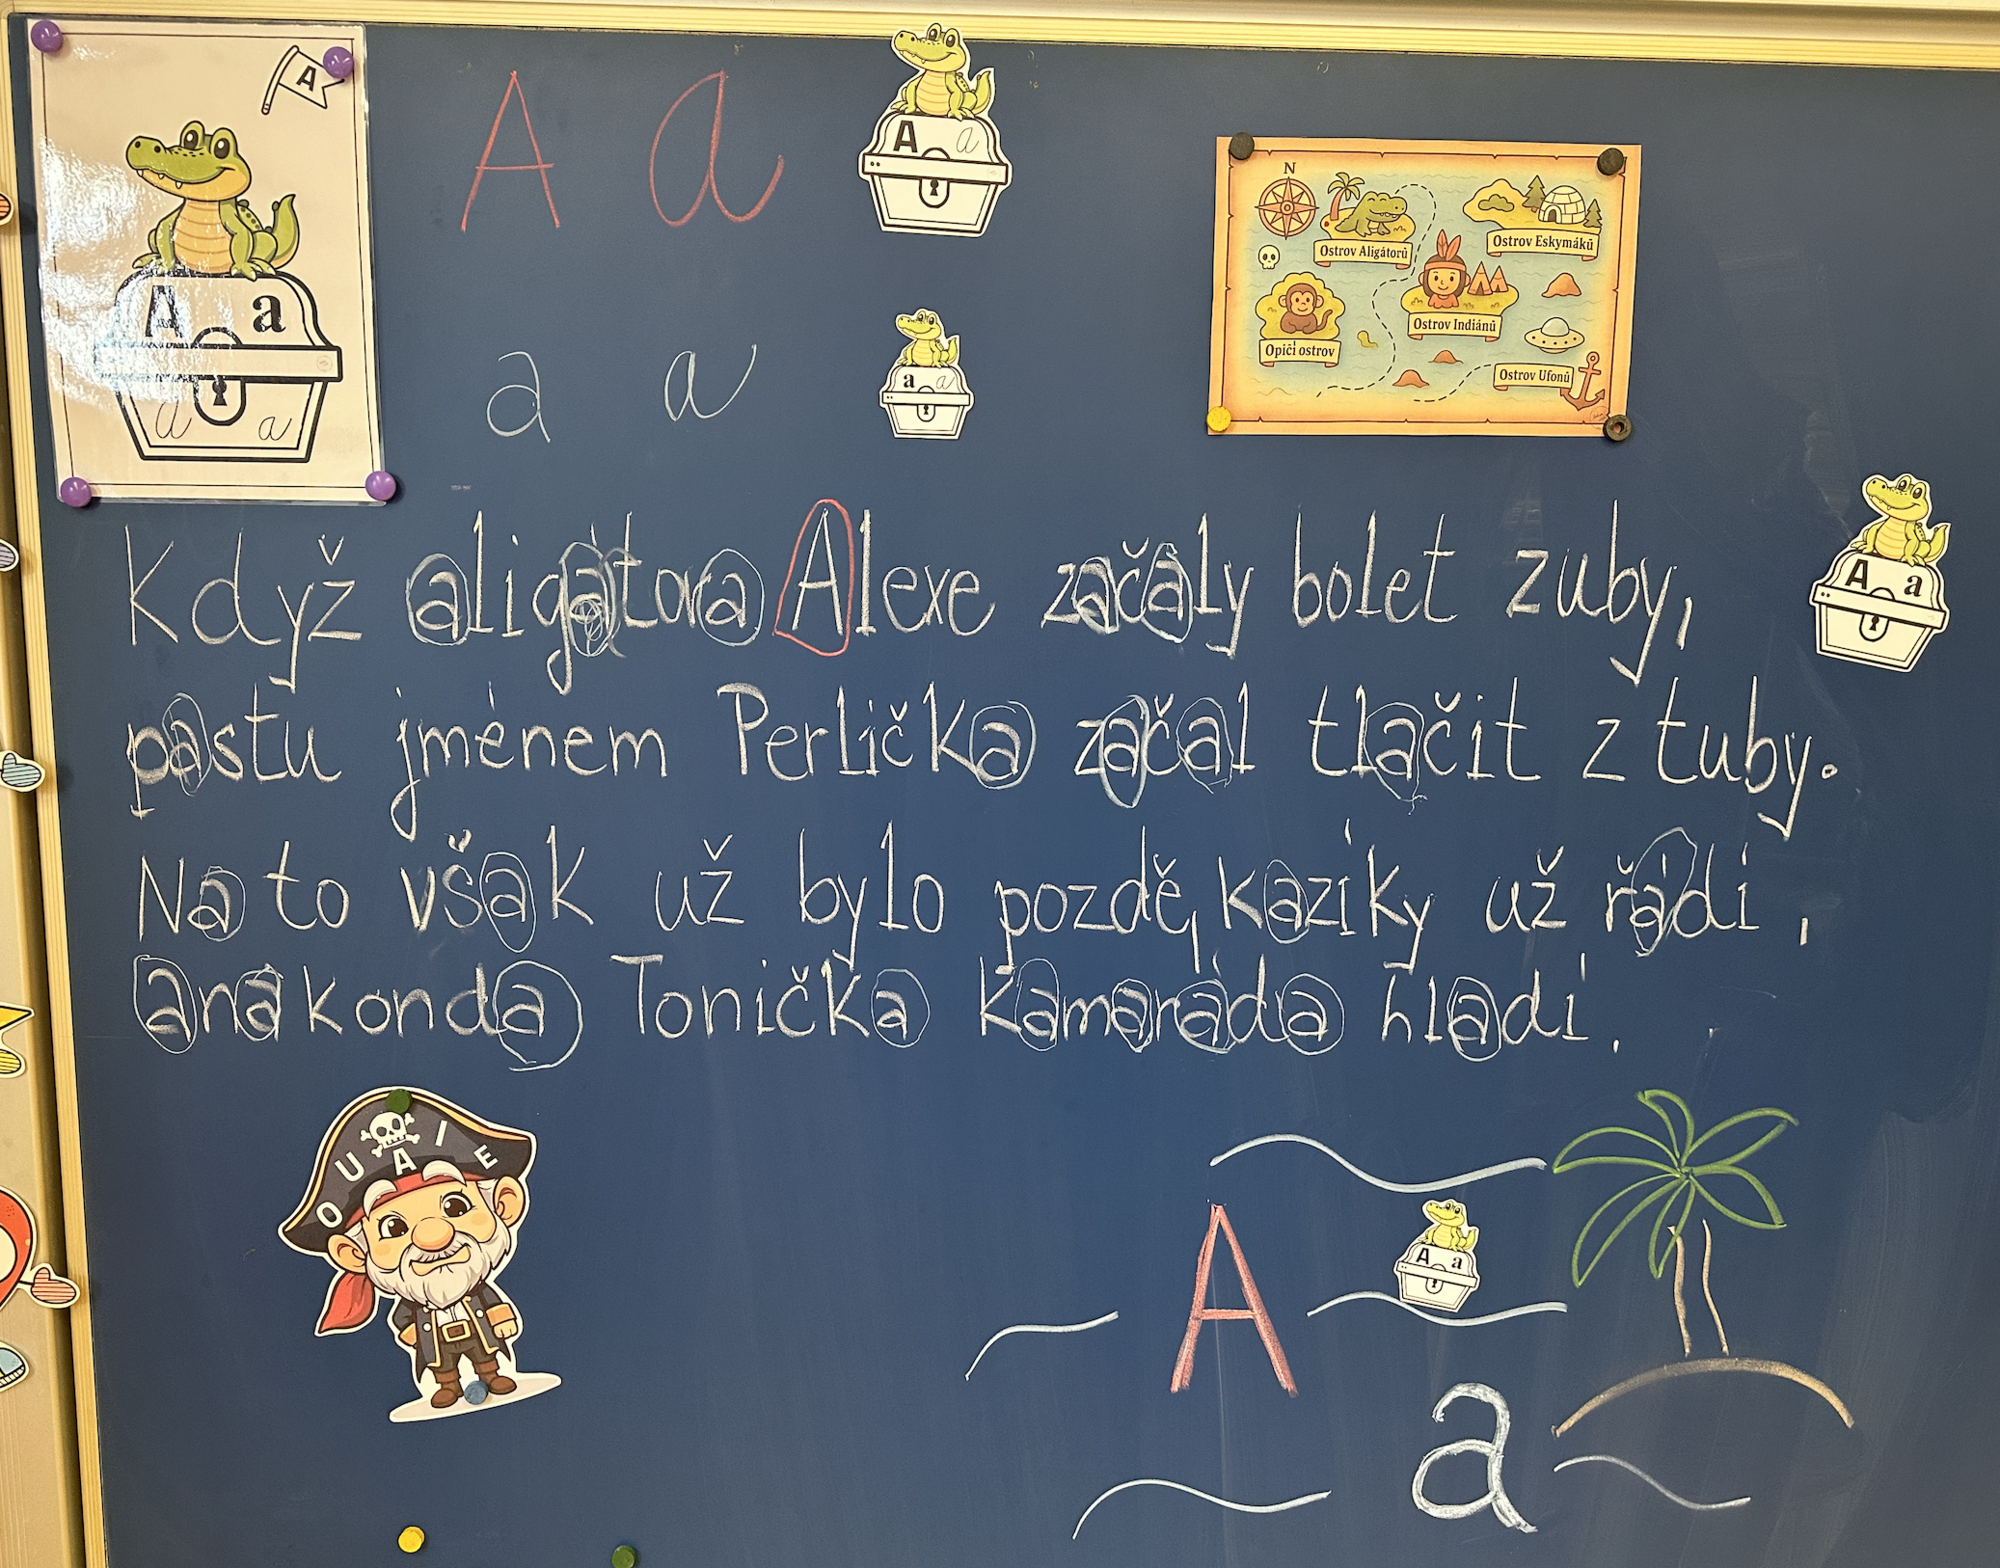 A
A a
a a
A a
A a
a a
A a
N
Ostrov Aligátorů
Ostrov Eskymáků
Ostrov Indiánů
Opičí ostrov
Ostrov Ufonů
a a
Když aligátora Alexe začaly bolet zuby,
A a
pastu jménem Perlička začal tlačit z tuby.
Na to však už bylo pozdě, kazíky už řádí,
anakonda Tonička kamaráda hladí.
O U A I E
A
A a
a